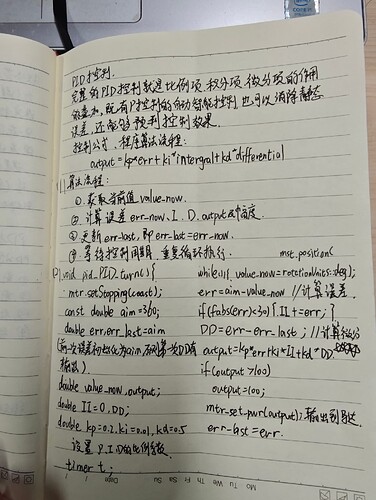 PID控制.
完整的PID控制就是比例项.积分项.微分项的作用
的叠加,既有P控制的自动智能控制也可以消除静态
误差,还能够预判控制效果.
控制公式,程序算法流程:
output=kp*err+ki*intergral+kd*differential
算法流程:
①.获取当前值 value_now.
②.计算误差err_now、I、D、output及幅度.
③更新err_last,即err_last=err_now.
④.等待控制周期,重复循环执行.
void pid_PID_turn(){
mtr.setStopping(coast);
const double aim=360;
double err,err_last=aim
(前一次误差初始化为aim
double value_now,output;
double II=0,DD;
double kp=0.2,ki=0.01,kd=0.5
设置P.I.D的比例参数.
timer t;
mst.position(
while(1){ value_now=rotationUnits::deg);
err=aim-value_now //计算误差.
if(fabs(err)<30){II+=err;}
DD=err-err_last; //计算微分
output=kp*err+ki*II+kd*DD
if(output>100)
output=100;
mtr-set.pwr(output);输出到马达
err-last=err.
Mo Tu We Th Fr Sa Su
Date